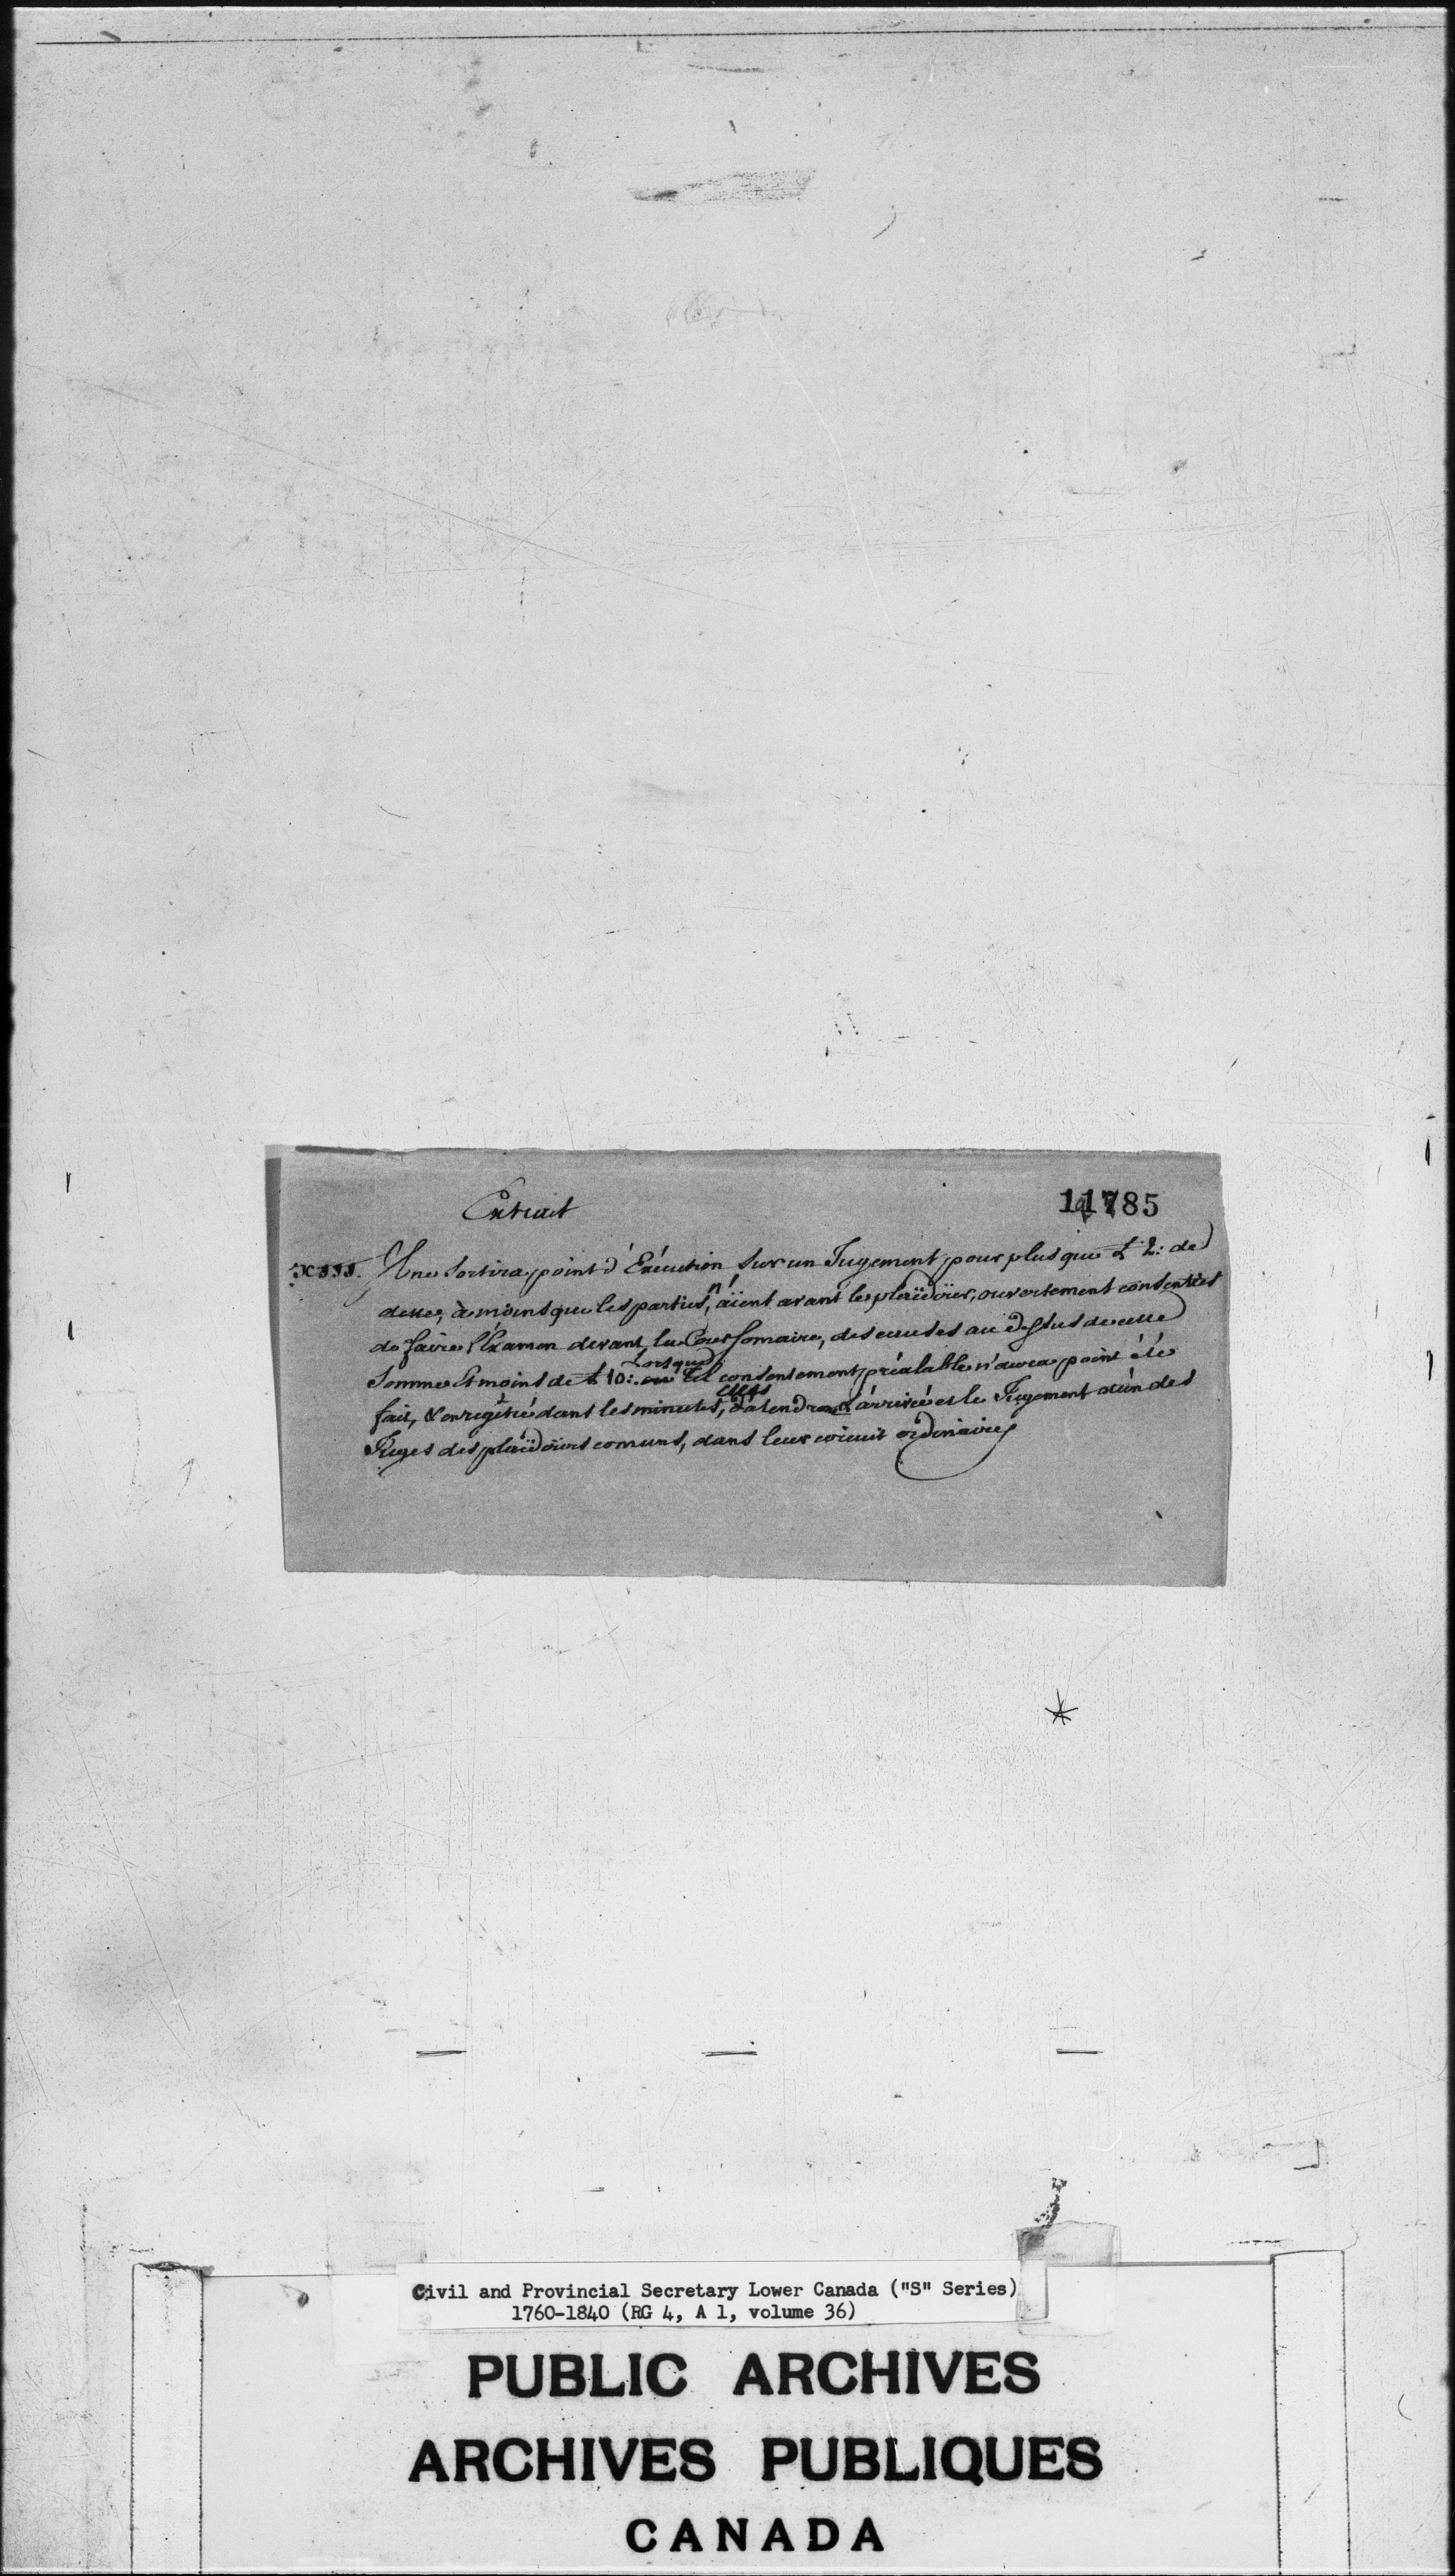 Extrait
11785
XIII. Il ne sortira point d'Exécution sur un Jugement pour plus que £ 2: de
dette, à moins que les parties, n'aïent avant les plaïdoïer, ouvertement consenties
de faire l'Examen devant la Cour somaire, des causes au dessus de cette
Lorsque
Somme & moins de £ 10: un tel consentement préalable n'aura point été
elles
fait, & enregitré dans les minutes, attendront l'arrivée et le Jugement d'un des
Juges des plaïdoïers comuns, dans leur circuit ordinaire
Civil and Provincial Secretary Lower Canada ("S" Series)
1760-1840 (RG 4, A 1, volume 36)
PUBLIC ARCHIVES
ARCHIVES PUBLIQUES
CANADA